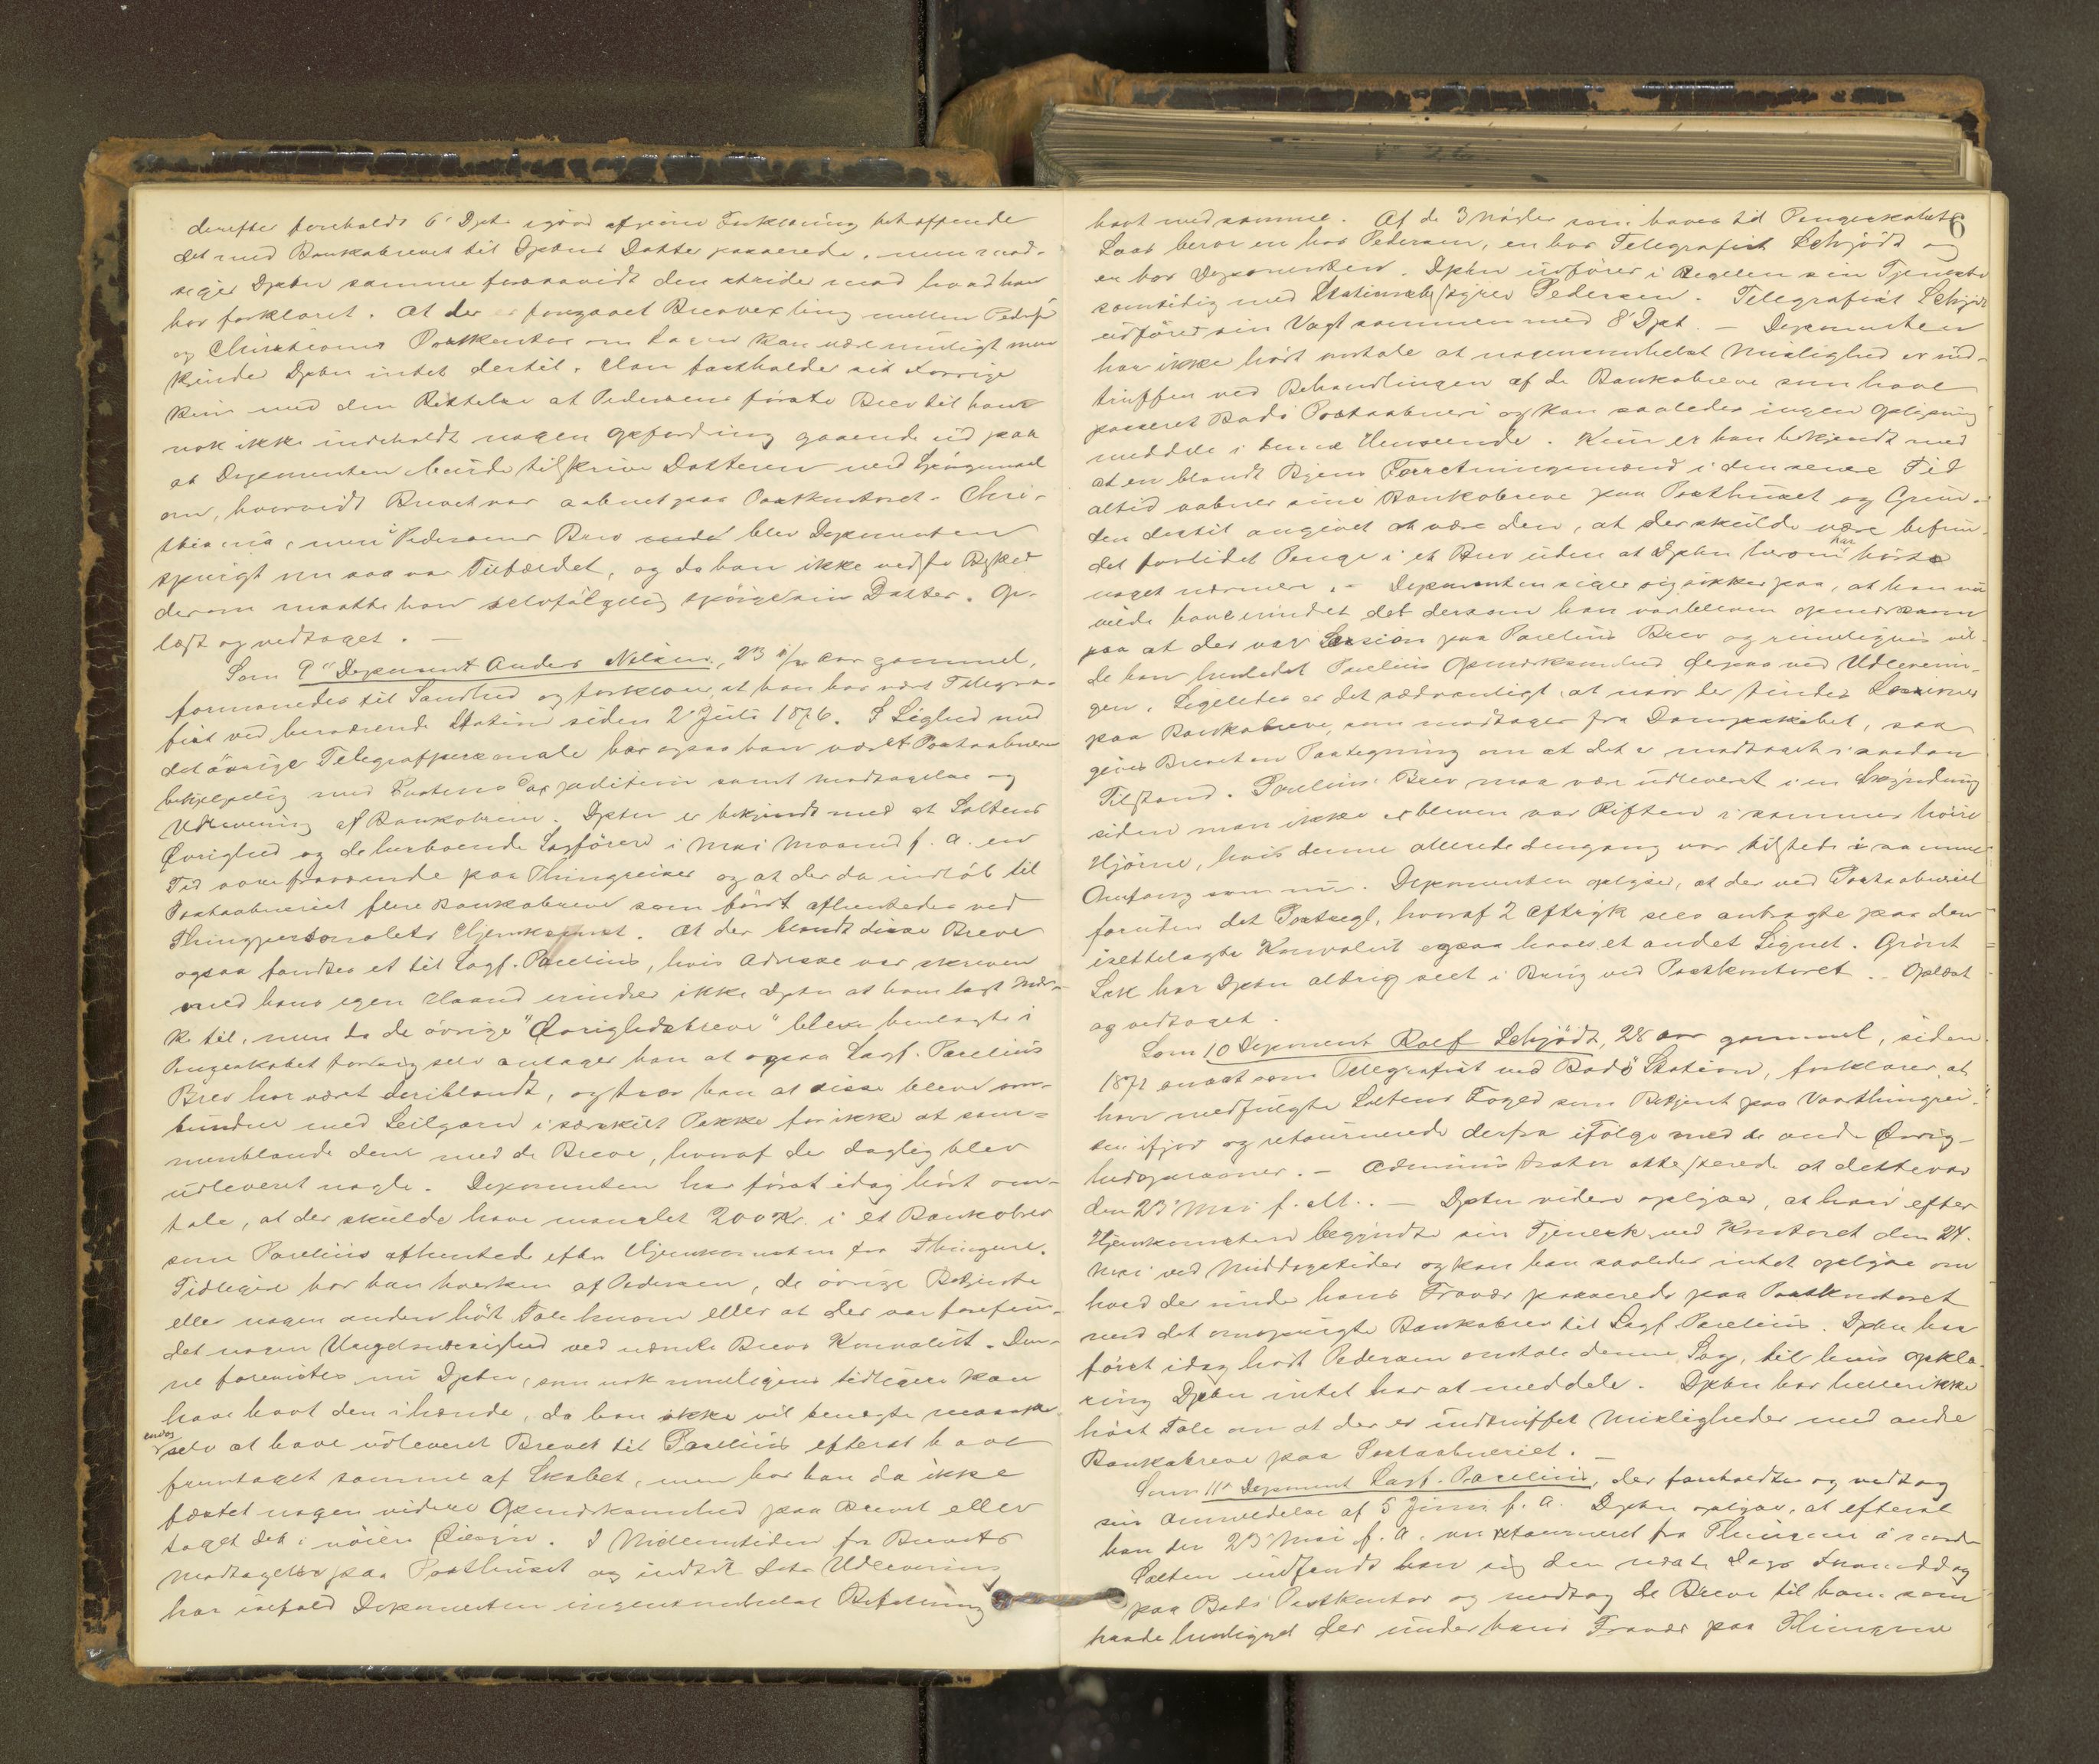 derefter foreholdt 6' Dpts igaar afgivne Forklaring betræffende
det med Bankobrevet til Dptens Datter passerede, men mod-
siger Dpten samme forsaavidt den strider mod hvad han
har forklaret. At der er foregaaet Brevvexling mellem
og Christiania Postkontor om Sagen kan være muligt men
kjender Dpten intet dertil. Han fastholder sit Forrige
kun med den Rettelse at Pedersens første Brev til ham
nok ikke indeholdt nogen Opfordring gaaende ud paa
at Deponenten burde tilskrive Datteren med Spørgsmaal
om, hvorvidt Brevet var aabnet paa Postkontoret i Chri-
stiania, men i Pedersens Brev blev Deponenten
spurgt om saa var Tilfældet, og da han ikke vidste Besked
derom maatte han selvfølgelig spørge sin Datter. Op-
læst og vedtaget. —
Som 9' Deponent Anders Nilsen, 23 aar gammel,
formanedes til Sandhed og forklarer, at han har vært Telegra-
fist ved herværende Station siden 2' Juli 1876. I Lighed med
det øvrige Telegrafpersonale har ogsaa han været Postaabneren
behjelpelig med Postens Expedition samt Modtagelse og
Udlevering af Bankobreve. Dpten er bekjendt med at Saltens
Øvrighed og de herboende Sagførere i Mai Maaned f. A. en
Tid vare fraværende paa Thingreiser og at der da indløb til
Postaabneriet flere Bankobreve som først afhentedes ved
Thingpersonalets Hjemkomst. At der blandt disse Breve
ogsaa fandtes et til Sagf. Parelius, hvis Adresse var skreven
med hans egen Haand erindrer ikke Dpten at have lagt Mær-
ke til, men da de øvrige "Øvrighedsbreve" bleve henlagte i
Pengeskabet for sig selv antager han at ogsaa Sagf. Parelius
Brev har været deriblandt, og tror han at disse bleve om-
bundne med Seilgarn i særskilt Pakke for ikke at sam-
menblande dem med de Breve, hvoraf der daglig blev
udleveret nogle. Deponenten har først idag hørt om-
tale, at der skulde have manglet 200 Kr. i et Bankobrev
som Parelius afhentede efter Hjemkomsten fra Thingene.
Tidligere har han hverken af Pedersen, de øvrige Betjente
eller nogen anden hørt Tale herom eller at der var forefun-
det nogen Uregelmæssighed ved nævnte Brevs Konvolut. Den-
ne forevistes nu Dpten, som nok muligens tidligere kan
have havt den ihænde, da han ikke vil benegte maaske
endog
selv at have udleveret Brevet til Parelius efterat have
fremtaget samme af Skabet, men har han da ikke
fæstet nogen videre Opmærksomhed paa Brevet eller
taget det i nøiere Øiesyn. I Mellemtiden fra Brevets
Modtagelse paa Posthuset og indtil dets Udlevering
har ialfald Deponenten ingensomhelst Befatning
6
havt med samme. Af de 3 Nøgler som haves til Pengeskabets
Laas beror en hos Pedersen, en hos Telegrafist Schjödt og
en hos Deponenten. Dpten udfører i Regelen sin Tjeneste
samtidig med Stationsbestyrer Pedersen. Telegrafist Schjödt
udfører sin Vagt sammen med 8' Dpt. — Deponenten
har ikke hørt omtale at nogensomhelst Mislighed er ind-
truffen ved Behandlingen af de Bankobreve som have
passeret Bodø Postaabneri og kan saaledes ingen Oplysning
meddele i denne Henseende. Kun er han bekjendt med
at en blandt Byens Forretningsmænd i den senere Tid
altid aabner sine Bankobreve paa Posthuset og Grun-
den dertil angives at være den, at der skulde være befun-
det forlidet Penge i et Brev uden at Dpten herom har hørt
noget nærmere. — Deponenten siger sig sikker paa, at han nu
vilde have erindret det dersom han var bleven opmærksom
paa at der var Læsion paa Parelius Brev og rimeligvis vil-
de han henledet Parelius Opmærksomhed derpaa ved Udleverin-
gen. Ligeledes er det sædvanligt, at naar der findes Læsioner
paa Bankobreve, som modtages fra Dampskibet, saa
gives Brevet en Paategning om at det er modtaget i saadan
Tilstand. Parelius Brev maa være udleveret i en Skynding
siden man ikke er bleven var Riften i sammes høire
Hjørne, hvis denne allerede dengang var tilstede i samme
Omfang som nu. Deponenten oplyser, at der ved Postaabneriet
foruden det Postsegl, hvoraf 2 Aftryk sees anbragte paa den
irettelagte Konvolut ogsaa haves et andet Signet. Grønt
Lak har Dpten aldrig seet i Brug ved Postkontoret. — Oplæst
og vedtaget.
Som 10 Deponent Rolf Schjödt, 28 aar gammel, siden
1872 ansat som Telegrafist ved Bodø Station, forklarer, at
han medfulgte Saltens Foged som Betjent paa Vaarthingrei-
sen ifjor og retournerede derfra ifølge med de andre Øvrig-
hedspersoner. — Administrator attesterede at dette var
den 23' Mai f. A. — Dpten videre oplyser, at han efter
Hjemkomsten begyndte sin Tjeneste ved Kontoret den 24.
Mai ved Middagstider og kan han saaledes intet oplyse om
hvad der under hans Fravær passerede paa Postkontoret
med det omspurgte Bankobrev til Sagf. Parelius. Dpten har
først idag hørt Pedersen omtale denne Sag, til hvis Opkla-
ring Dpten intet har at meddele. Dpten har heller ikke
hørt Tale om at der er indtruffet Misligheder med andre
Bankobreve paa Postaabneriet. —
Som 11' Deponent Sagf. Parelius, der foreholdtes og vedtog
sin Anmeldelse af 5 Juni f. A. Dpten oplyser, at efterat
han den 23' Mai f. A. var retourneret fra Thingene i
Salten indfandt han sig den næste Dags Formiddag
paa Bodø Postkontor og modtog de Breve til ham som
havde henligget der under hans Fravær paa Thingene